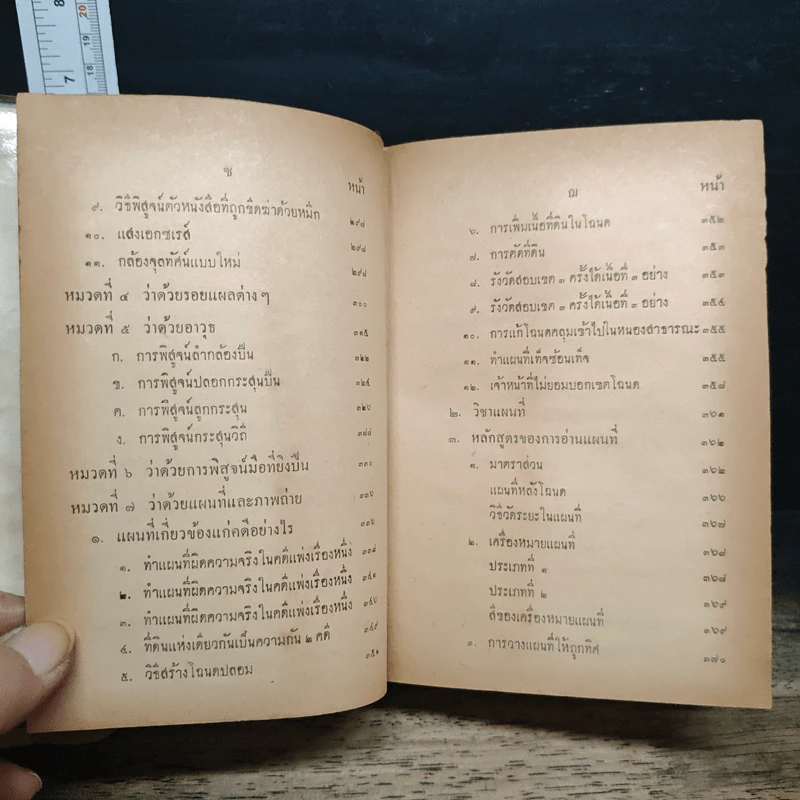 ซ
หน้า
๙. วิธีพิสูจน์ตัวหนังสือที่ถูกขีดฆ่าด้วยหมึก ๒๙๗
๑๐. แสงเอกซเรส์ ๒๙๘
๑๑. กล้องจุลทัศน์แบบใหม่ ๒๙๘
หมวดที่ ๔ ว่าด้วยรอยแผลต่าง ๆ ๓๐๐
หมวดที่ ๕ ว่าด้วยอาวุธ ๓๑๕
ก. การพิสูจน์ลำกล้องปืน ๓๒๒
ข. การพิสูจน์ปลอกกระสุนปืน ๓๒๔
ค. การพิสูจน์ลูกกระสุน ๓๒๖
ง. การพิสูจน์กระสุนวิถี
หมวดที่ ๖ ว่าด้วยการพิสูจน์มือที่ยิงปืน ๓๓๐
หมวดที่ ๗ ว่าด้วยแผนที่และภาพถ่าย ๓๓๖
๑. แผนที่เกี่ยวข้องแก่คดีอย่างไร ๓๓๖
๑. ทำแผนที่ผิดความจริงในคดีแพ่งเรื่องหนึ่ง ๓๓๘
๒. ทำแผนที่ผิดความจริงในคดีแพ่งเรื่องหนึ่ง ๓๔๑
๓. ทำแผนที่ผิดความจริงในคดีแพ่งเรื่องหนึ่ง ๓๔๖
๔. ที่ดินแห่งเดียวกันเป็นความกัน ๒ คดี ๓๔๙
๕. วิธีสร้างโฉนดปลอม ๓๕๑
ฌ
หน้า
๖. การเพิ่มเนื้อที่ดินในโฉนด ๓๕๒
๗. การคัดที่ดิน ๓๕๓
๘. รังวัดสอบเขต ๓ ครั้งได้เนื้อที่ ๓ อย่าง ๓๕๓
๙. รังวัดสอบเขต ๓ ครั้งได้เนื้อที่ ๓ อย่าง ๓๕๔
๑๐. การแก้โฉนดคลุมเข้าไปในหนองสาธารณะ ๓๕๕
๑๑. ทำแผนที่เท็จซ้อนเท็จ ๓๕๕
๑๒. เจ้าหน้าที่ไม่ยอมบอกเขตโฉนด ๓๕๘
๒. วิชาแผนที่ ๓๖๑
๓. หลักสูตรของการอ่านแผนที่ ๓๖๒
๑. มาตราส่วน ๓๖๒
แผนที่หลังโฉนด ๓๖๖
วิธีวัดระยะในแผนที่ ๓๖๗
๒. เครื่องหมายแผนที่ ๓๖๘
ประเภทที่ ๑ ๓๖๘
ประเภทที่ ๒ ๓๖๙
สีของเครื่องหมายแผนที่ ๓๖๙
๓. การวางแผนที่ให้ถูกทิศ ๓๗๐